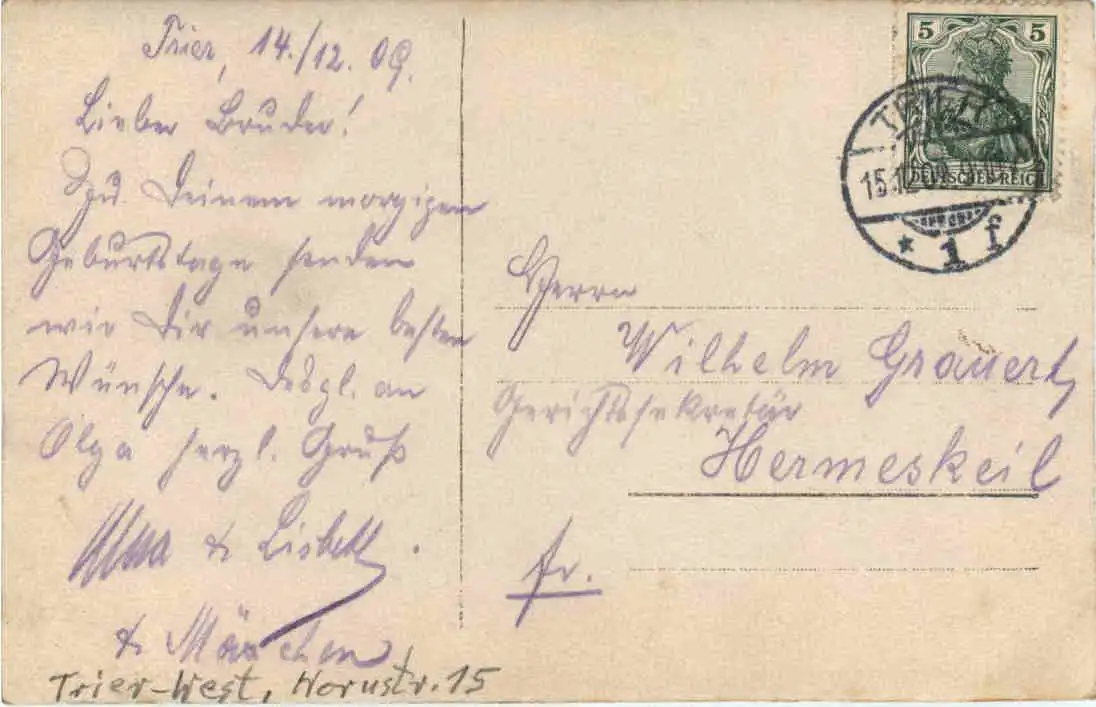 Trier, 14./12. 09.
Lieber Bruder!
Zu Deinem morgigen
Geburtstage senden
wir Dir unsere besten
Wünsche. Desgl. an
Olga herzl. Gruß
& Lisbeth.
& Mäxchen
Trier-West, Hornstr. 15
5 5
DEUTSCHES REICH
TRIER
15.12.09
* 1 f
Herrn
Wilhelm Grauert,
Gerichtssekretär
Hermeskeil
fr.